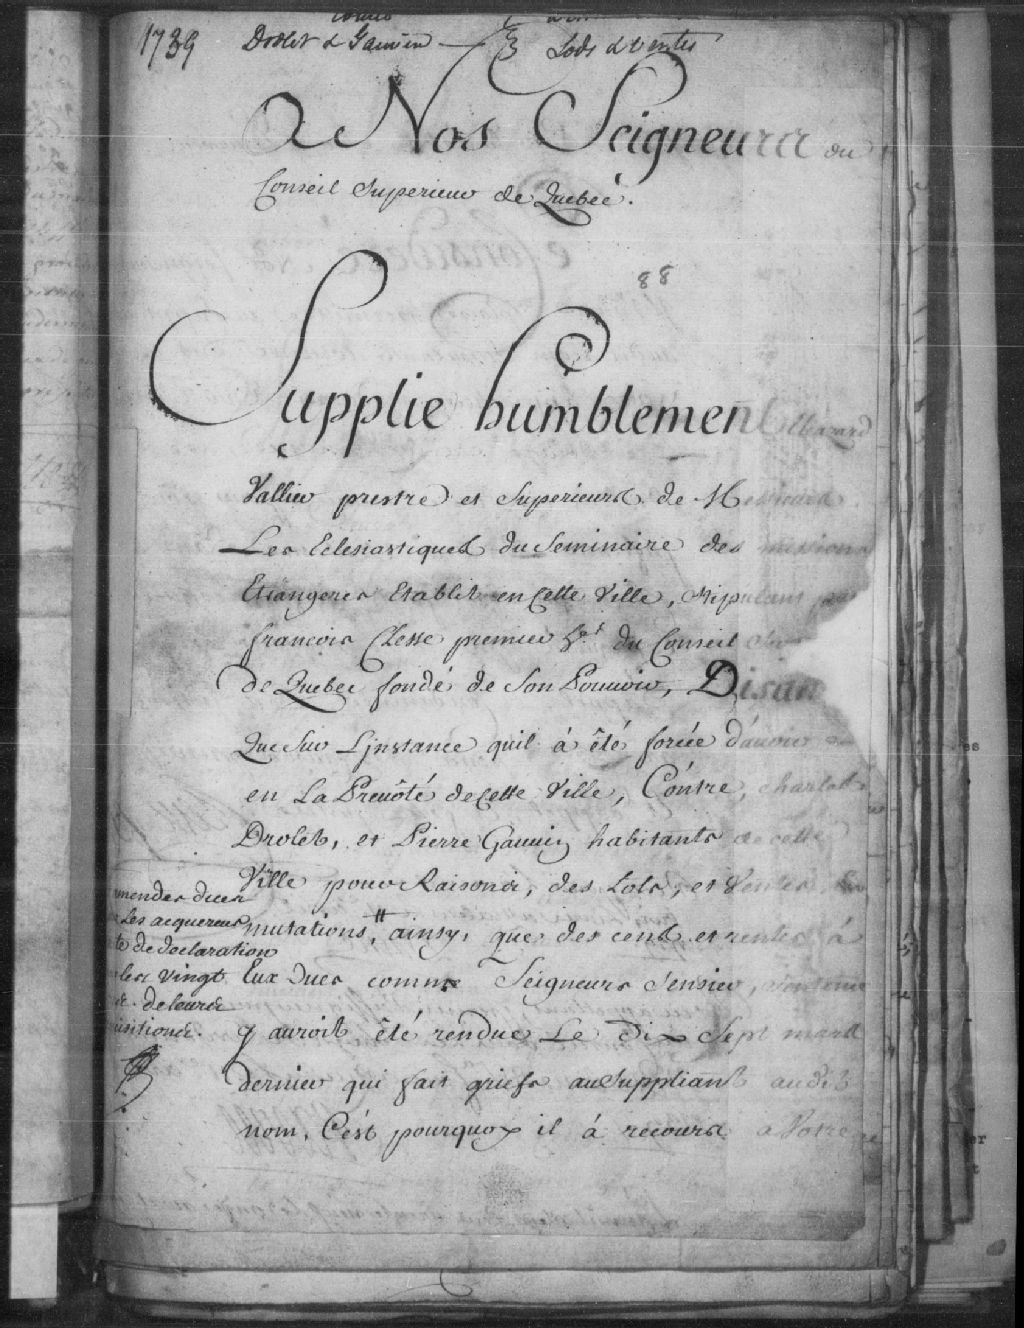 1739 Drolet & Gauvin Lods & ventes
A Nos Seigneurs du
Conseil Superieur de Quebec.
88
Supplie humblement
Vallier prestre et Superieurs de Messieurs
Les Eclesiastiques du Seminaire des missions
Etrangeres Etablit en Cette Ville, stipulant par
françois Clesse premier hr. du Conseil
de Quebec fondé de Son Pouvoir, Disant
Que Sur L'jnstance quil à été forcée d'avoir
en La Prevôté de Cette Ville, Cóntre, charles
Drolet, et Pierre Gauvin habitants de cette
Ville pour Raisons, des Lots, et Ventes,
mutations, # ainsy, que des cens et rentes à
Eux Dues comme Seigneurs Sensier, sentence
y auroit été rendue Le Dix Sept mars
dernier qui fait griefs au Suppliant audit
nom, C'est pourquoy il à recours a Votre
mendes dues
Les acquereurs
de declaration
les vingt
de leurs
uisitions.